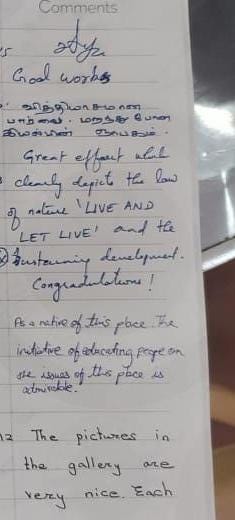 Comments
Good works
வித்தியாசமான
பார்வை. மறந்து போன
ஞாபகம்.
Great effort which
clearly depicts the law
of nature 'LIVE AND
LET LIVE' and the
Sustaining development.
Congradulations!
As a native of this place. The
initiative of educating people on
the issues of this place is
admirable.
12 The pictures in
the gallery are
very nice. Each